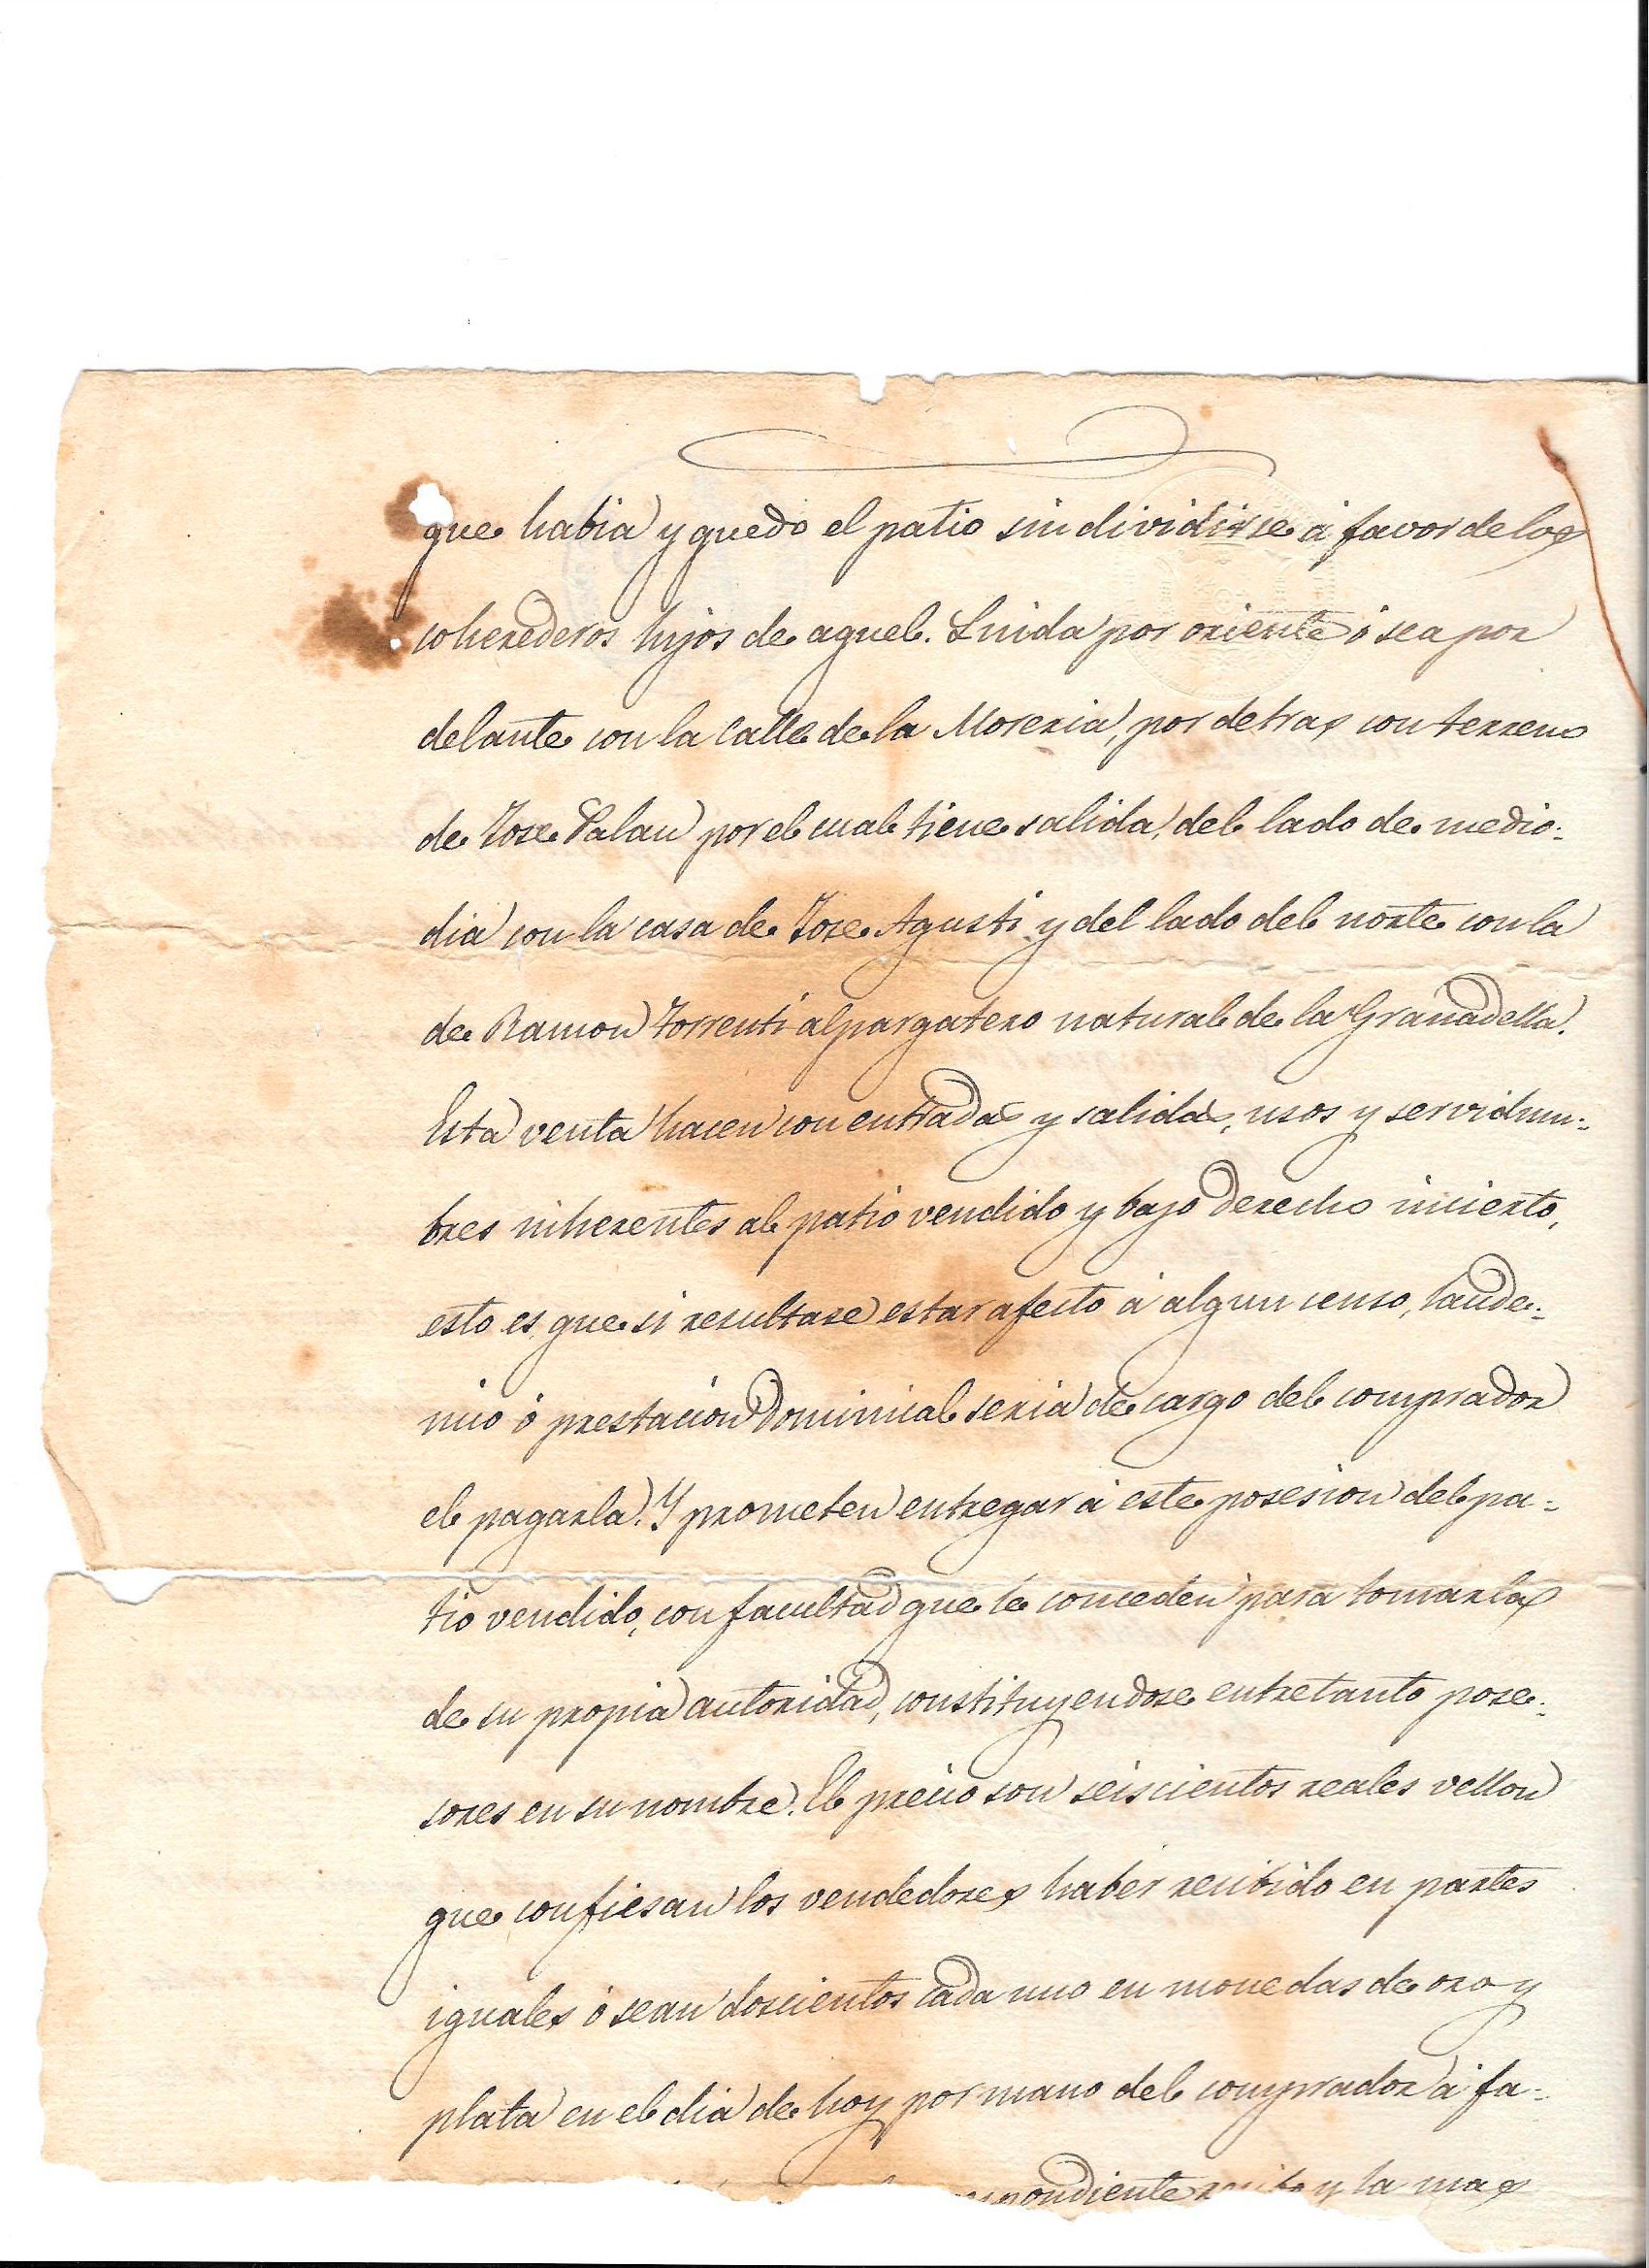 que habia y quedo el patio sin dividirse á favor de los
coherederos hijos de aquel. Linda por oriente ó sea por
delante con la Calle de la Moreria, por detras con terreno
de Jose Palau por el cual tiene salida, del lado de medio=
dia con la casa de Jose Agusti y del lado del norte con la
de Ramon Torrenti alpargatero natural de la Granadella.
Esta venta hacen con entradas y salidas, usos y servidum=
bres inherentes al patio vendido y bajo derecho incierto,
esto es, que si resultase estar afecto á algun censo, laude=
mio ó prestacion Dominical seria de cargo del comprador
el pagarla. Y prometen entregar á este posesion del pa=
tio vendido, con facultad que le conceden para tomarla
de su propia autoridad, constituyendose entretanto pose=
sores en su nombre. El precio son seiscientos reales vellon
que confiesan los vendedores haber recibido en partes
iguales ó sean doscientos cada uno en monedas de oro y
plata en el dia de hoy por mano del comprador á fa=
pondiente y la mas